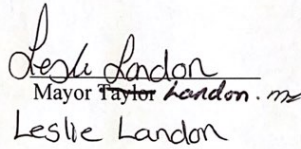 Lesli Landon
Mayor Taylor Landon.
Leslie Landon